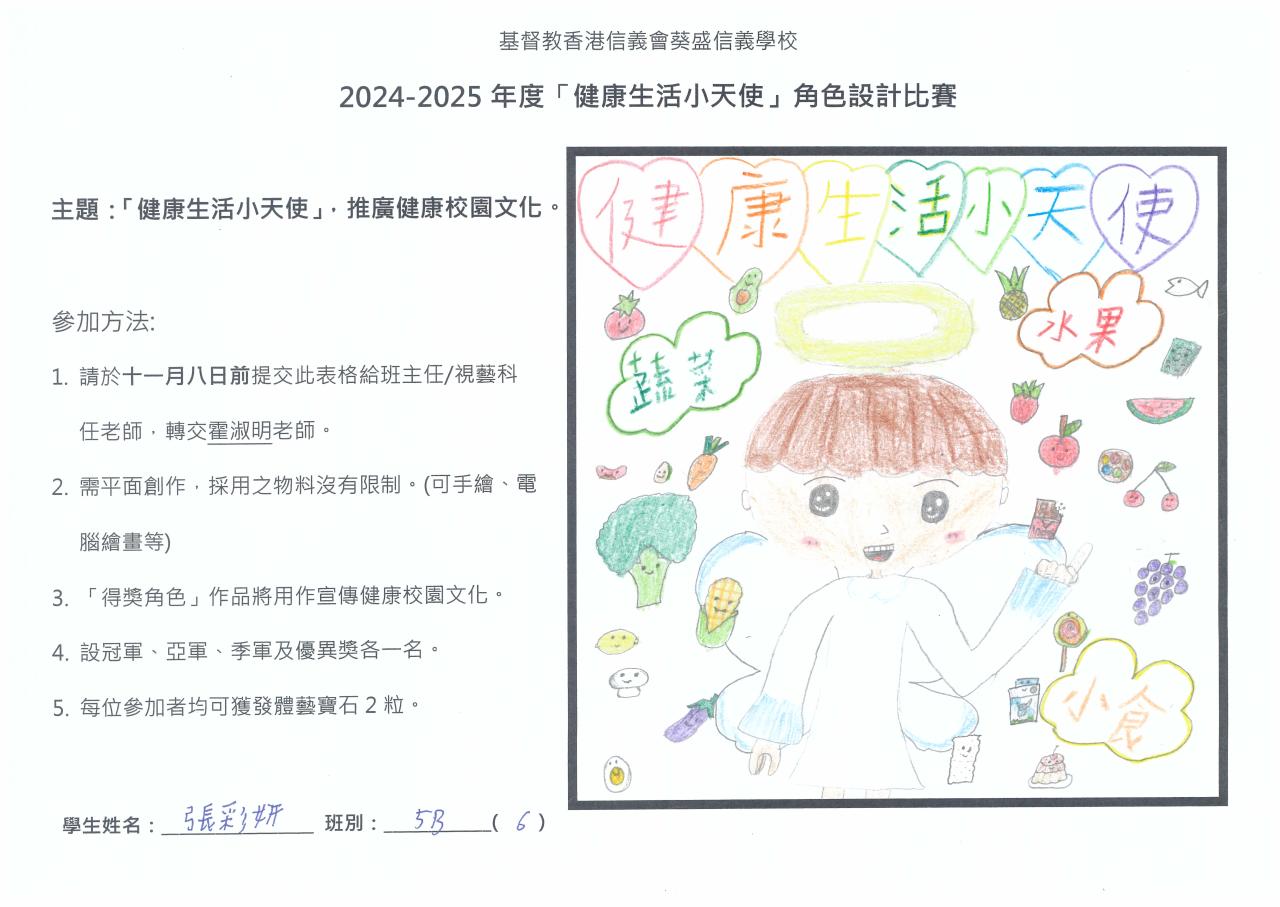 基督教香港信義會葵盛信義學校
2024-2025 年度「健康生活小天使」角色設計比賽
主題：「健康生活小天使」，推廣健康校園文化。
參加方法:
1. 請於十一月八日前提交此表格給班主任/視藝科
任老師，轉交霍淑明老師。
2. 需平面創作，採用之物料沒有限制。(可手繪、電
腦繪畫等)
3. 「得獎角色」作品將用作宣傳健康校園文化。
4. 設冠軍、亞軍、季軍及優異獎各一名。
5. 每位參加者均可獲發體藝寶石 2 粒。
學生姓名：張彩妍 班別：5B ( 6 )
健康生活小天使
水果
蔬菜
小食